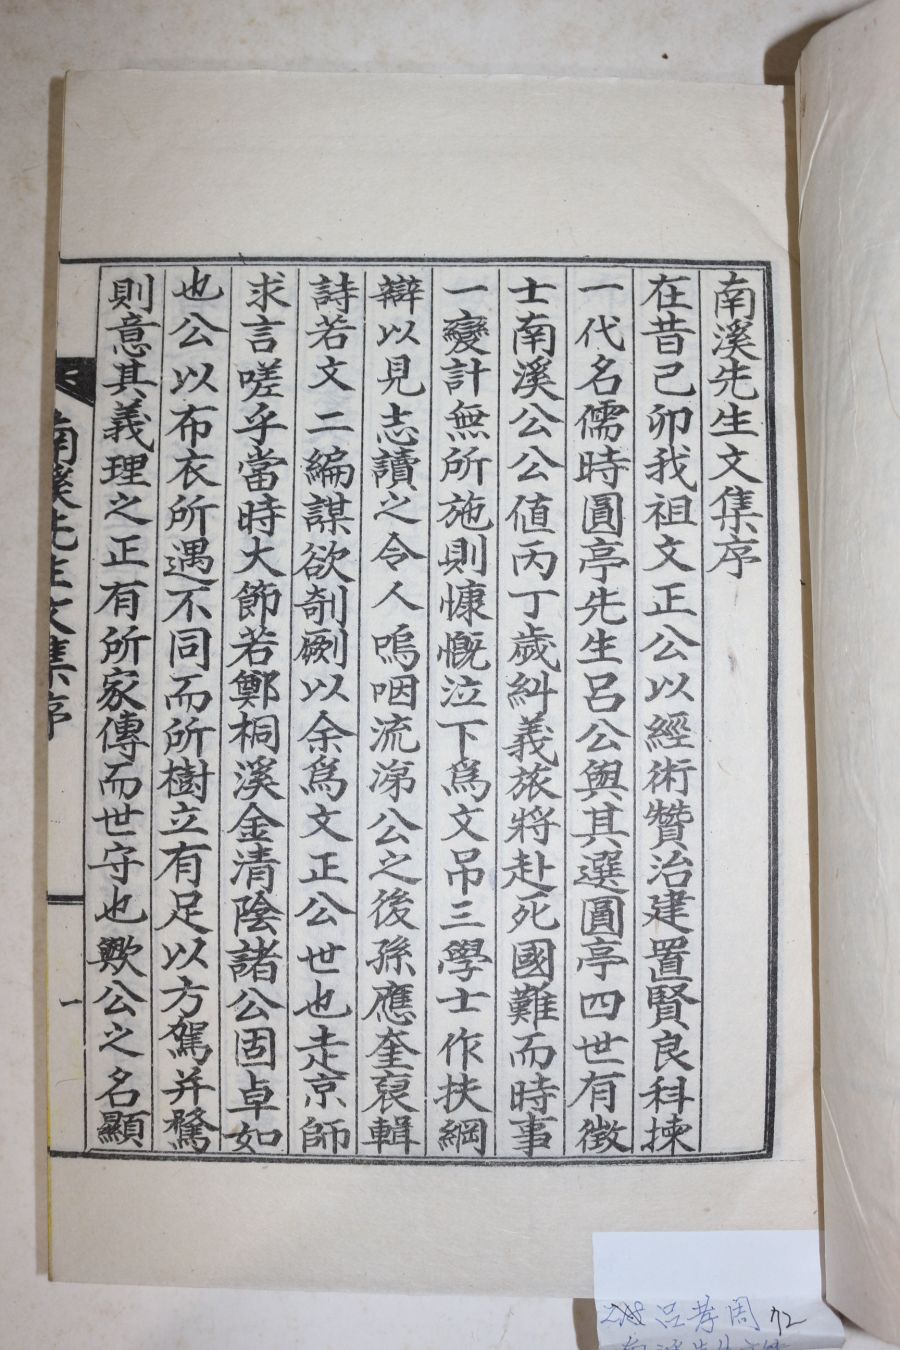 南溪先生文集序
在昔己卯我祖文正公以經術贊治建置賢良科揀
一代名儒時圓亭先生呂公與其選圓亭四世有徵
士南溪公公値丙丁歲糾義旅將赴死國難而時事
一變計無所施則慷慨泣下爲文吊三學士作扶綱
辯以見志讀之令人嗚咽流涕公之後孫應奎裒輯
詩若文二編謀欲剞劂以余爲文正公世也走京師
求言嗟乎當時大節若鄭桐溪金清陰諸公固卓如
也公以布衣所遇不同而所樹立有足以方駕并騖
則意其義理之正有所家傳而世守也歟公之名顯
南溪先生文集序
一
呂孝周 72